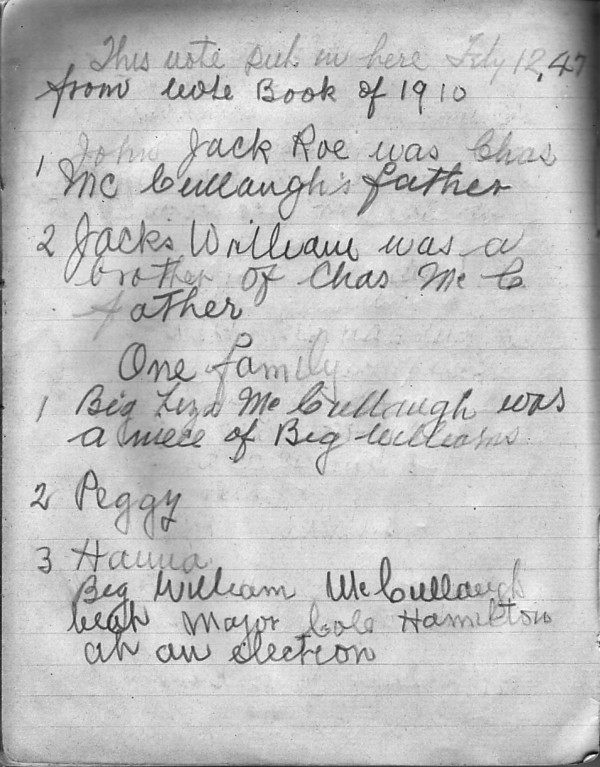 This note put in here Feby 12, 47
from Note Book of 1910
1 John Jack Roe was Chas
Mc Cullaugh's father
2 Jacks William was a
brother of Chas Mc C
father
One family
1 Big Liza Mc Cullaugh was
a niece of Big Williams
2 Peggy
3 Hanna
Big William McCullaugh
beat Major Cole Hamilton
at an election